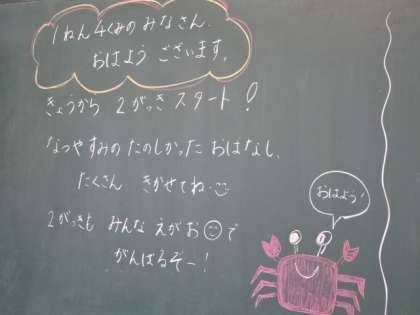 1ねん4くみの みなさん、
おはよう ございます。
きょうから 2がっき スタート!
なつやすみの たのしかった おはなし、
たくさん きかせてね。
2がっきも みんな えがおで
がんばるぞー!
おはよう!